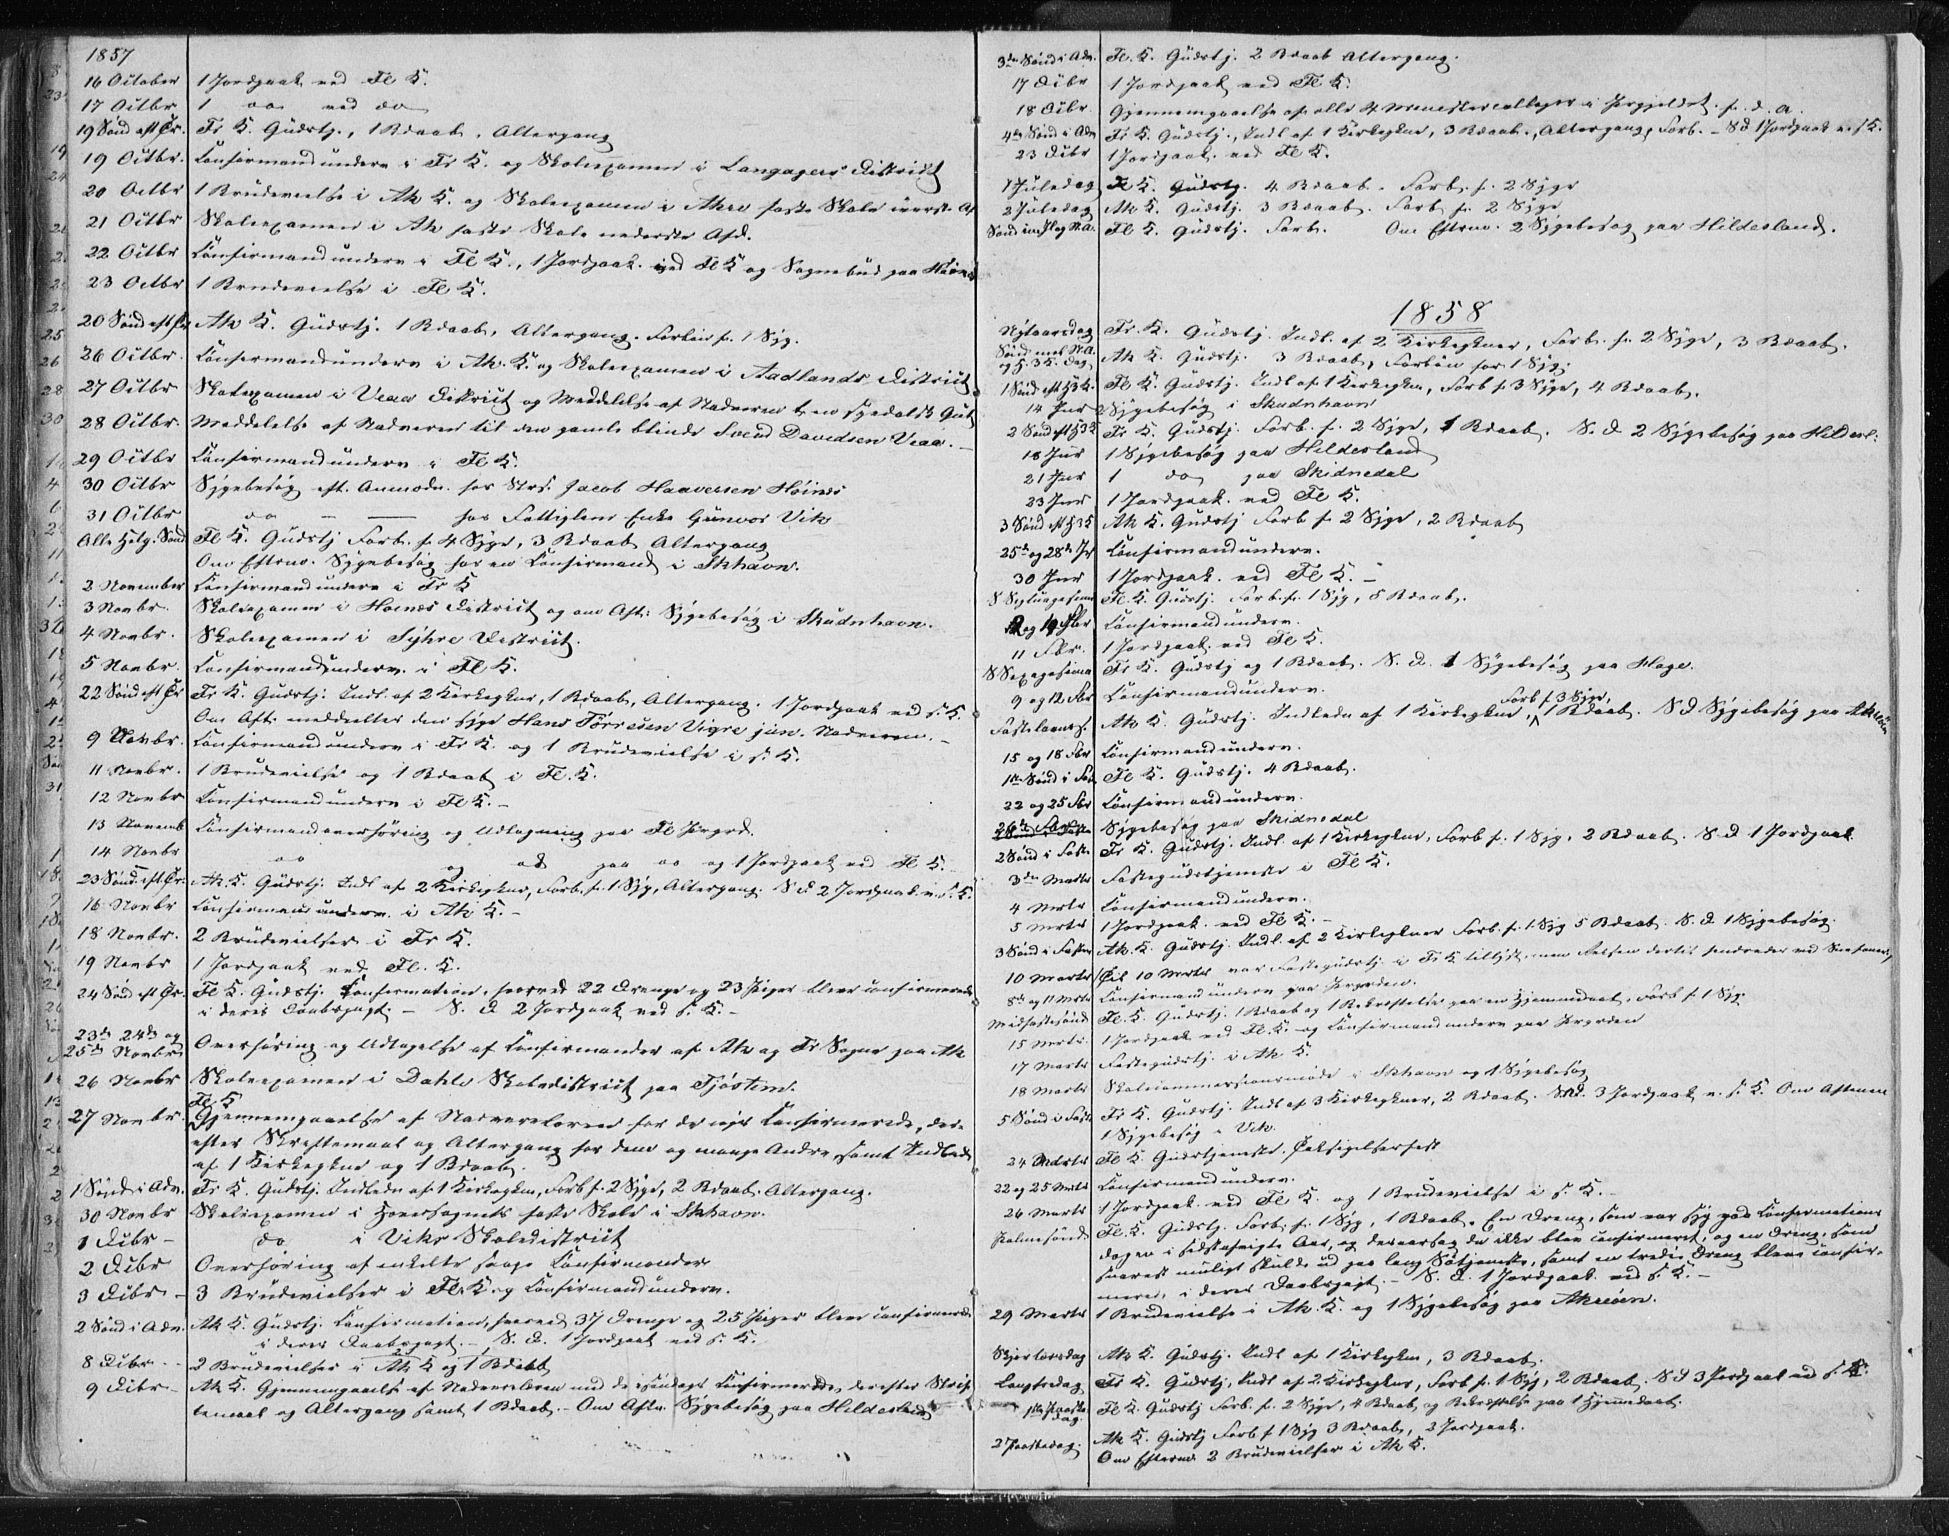 1857
16 October 1 Jordpaak ved Fl K.
17 Octbr 1 do ved do
19 Sønd eft Tr. Fr K. Gudstj., 1 Bdaab, Altergang
19 Octbr. Confirmandunderv i Fr K. og Skoleexamen i Langagers District
20 Octbr 1 Brudevielse i Ak K. og Skoleexamen i Akre faste Skole øverste Af
21 Octbr Skoleexamen i Ak faste Skole nederste Afd.
22 Octbr Confirmandunderv i Fl K., 1 Jordpaak. ved Fl K og Sognebud paa
23 Octbr 1 Brudevielse i Fl K.
20 Sønd eft Tr Ak K. Gudstj. 1 Bdaab, Altergang. Forbøn f. 1 Syg.
26 Octbr. Confirmandunderv i Ak. K. og Skoleexamen i Aadlands District
27 Octbr Skoleexamen i Veaa District og Meddelelse af Nadveren
28 Octbr. Meddelelse af Nadveren til den gamle blinde Svend Davidsen Veaa. –
29 Octbr Confirmandunderv i Fl K.
30 Octbr Sygebesøg eft. Anmodn. hos Jacob Haaversen Høines
31 Octbr do – — hos Fattiglem Enke Gunvor Vik
Alle Helg. Sønd Fl K. Gudstj Forb. f. 4 Syge, 3 Bdaab Altergang
Om Efterm. Sygebesøg hos en Confirmand i Skhavn.
2 November Confirmandunderv i Fr K
3 Novbr. Skoleexamen i Høines District og om Aft: Sygebesøg i Skudnhavn.
4 Novbr. Skoleexamen i Syhre District.
5 Novbr. Confirmandunderv. i Fl K.
22 Sønd eft Tr Fr K. Gudstj. Indl. af 2 Kirkegkner, 1 Bdaab, Altergang. 1 Jordpaak ved s. K.
Om Aft. meddeeltes den syge Hans Tørresen Vigre jun. Nadveren. –
9 Novbr. Confirmandunderv i Fr K. og 1 Brudevielse i s. K.
11 Novbr. 1 Brudevielse og 1 Bdaab i Fl. K.
12 Novbr Confirmandunderv i Fl K. –
13 Novemb Confirmandoverhøring og Udtagning paa Fl Prgrd.
14 Novbr do og do paa do og 1 Jordpaak ved Fl K.
23 Sønd. eft Tr. Ak. K. Gudstj. Indl af 2 Kirkegkner, Forb. f. 1 Syg, Altergang. S D 2 Jordpaak v. s. K.
16 Novbr Confirmandunderv. i Ak K. –
18 Novbr. 2 Brudevielser i Fr K.
19 Novbr 1 Jordpaak ved Fl. K.
24 Sønd eft Tr. Fl K. Gudstj. Confirmation, hvorved 22 Drenge og 23 Piger bleve confirmerede
i deres Daabspagt. – S. D 2 Jordpaak ved s. K. –
23de 24de og
25de Novbr. Overhøring og Udtagelse af Confirmander af Ak og Fr Sogne paa Ak
26 Novbr Skoleexamen i Dahle Skoledistrict paa Tjøstem.
Fl K
27 Novbr. Gjennemgaaelse af Nadverelæren for de nys Confirmerede, der-
efter Skriftemaal og Altergang for dem og mange Andre, samt Indledn
af 1 Kirkegkne og 1 Bdaab.
1 Sønd i Adv. Fr K. Gudstj. Indledn af 1 Kirkegkne, Forb f. 2 Syge, 2 Bdaab. Altergang.
30 Novbr Skoleexamen i Hovedsognets faste Skole i Skhavn.
1 Decbr – do i Viks Skoledistrict
2 Decbr Overhøring af enkelte svage Confirmander
3 Decbr – 3 Brudevielser i Fl. K. og Confirmandunderv.
2 Sønd i Adv. Ak K. Gudstj. Confirmation, hvorved 37 Drenge og 25 Piger bleve confirmerede
i deres Daabspagt. – S. D. 1 Jordpaak ved s. K.
8 Decbr – 2 Brudevielser i Ak K og 1 Bdaab
9 Decbr – Ak K. Gjennemgaaelse af Nadverelæren med de i Søndags Confirmerede, derefter Skrif-
temaal og Altergang samt 1 Bdaab. – Om Aftn. Sygebesøg paa Hildesland
3die Sønd i Adv. Fl. K. Gudstj. 2 Bdaab Altergang.
17 Decbr 1 Jordpaak ved Fl K.
18 Decbr. Gjennemgaaelse af alle 4 i Prgjeldet. f. d. A.
4de Sønd i Adv Fr K. Gudstj., Indl af 1 Kirkegkne, 3 Bdaab., Altergang, Forb. – S D 1 Jordpaak v. s K.
23 Decbr 1 Jordpaak. ved Fl K.
1 Juledag Fl K. Gudstj. 4 Bdaab. Forb. f. 2 Syge
2 Juledag Ak K. Gudstj. 3 Bdaab. Forb f. 2 Syge
Sønd ml Jul og N.A. Fl K. Gudstj. Forb. Om Efterm. 2 Sygebesøg paa Hildesland.
1858
Nytaarsdag Fr. K. Gudstj. Indl. af 2 Kirkegkner, Forb. f. 2 Syge, 3 Bdaab.
Sønd mel N.A.
og H. 3 K. dag Ak K. Gudstj. 3 Bdaab, Forbøn for 1 Syg.
1 Sønd eft H3K. Fl K. Gudstj. Indl af 1 Kirkegkne, Forb f. 3 Syge, 4 Bdaab.
14 Janr 2 Sygebesøg i Skudnhavn
2 Sønd eft H3K Fr K. Gudstj. Forb. f. 2 Syge, 1 Bdaab. S. D. 2 Sygebesøg paa Hildesl:
18 Janr 1 Sygebesøg paa Hildesland
21 Janr 1 do paa Skidnedal
23 Janr 1 Jordpaak. ved Fl K.
3 Sønd eft H3K Ak K. Gudstj Forb f. 2 Syge, 2 Bdaab
25de og 28de Jr Confirmandunderv.
30 Janr 1 Jordpaak. ved Fl K. –
S Septuagesima Fl. K. Gudstj. Forb. f. 1 Syg, 5 Bdaab.
Fbr Confirmandunderv.
11 Fbr. 1 Jordpaak ved Fl K.
S Sexagesima Fr K. Gudstj og 1 Bdaab. S. D. 1 Sygebesøg paa Hage.
9 og 12 Fbr Confirmandunderv.
Forb f 3 Syge,
Fastelavns. Ak K. Gudstj. Indledn af 1 Kirkegkne, 1 Bdaab. S D Sygebesøg paa Akreøen
15 og 18 Fbr Confirmandunderv.
1ste Sønd i Fast Fl K. Gudstj. 4 Bdaab.
22 og 25 Fbr Confirmandunderv.
26de Febr Sygebesøg paa Skidnedal
2 Sønd i Faste Fr K. Gudstj. Indl af 1 Kirkegkne, Forb f. 1 Syg, 2 Bdaab. S D 1 Jordpaak
3die Marts Fastegudstjeneste i Fl K.
4 Marts Confirmandunderv.
5 Marts 1 Jordpaak. ved Fl K. –
3 Sønd i Fasten Ak. K. Gudstj. Indl. af 2 Kirkegkner Forb. f. 1 Syg 5 Bdaab. S. D 1 Sygebesøg.
10 Marts Til 10 Marts var Fastegudstj. i Fr K tillyst, men Reisen dertil hindredes ved
8de og 11 Mrts Confirmandunderv paa Prgrden.
Midfastesønd Fl. K. Gudstj. 1 Bdaab og 1 Bekræftelse paa en Hjemmedaab, Forb f. 1 Syg.
15 Mrts. 1 Jordpaak ved Fl. K. og Confirmandunderv paa Prgrden
17 Marts Fastegudstj. i Ak K.
18 Marts Skolecommissionsmøde i Skhavn og 1 Sygebesøg
5 Sønd i Faste Fr K. Gudstj. Indl af 3 Kirkegkner, 2 Bdaab. S.D. 3 Jordpaak v. s. K. Om Aftenen
1 Sygebesøg i Vik.
24 Marts Fl K. Gudstjeneste.
22 og 25 Mrts Confirmandunderv.
26 Marts 1 Jordpaak ved Fl K. og 1 Brudevielse i s. K. –
Palmesønd Fl. K. Gudstj. Forb. f. 1 Syg, 1 Bdaab. En Dreng, som var syg paa Confirmations
dagen i sidstafvigte Aar, og desaarsag da ikke blev confirmeret, og en Dreng, som
snarest muligt skulde ud paa lang Søtjeneste, samt en tredie Dreng bleve confir-
merede i deres Daabspagt. – S. D. 1 Jordpaak ved s. K. –
29 Marts 1 Brudevielse i Ak. K. og 1 Sygebesøg paa Akreøen.
Skjertorsdag Ak K. Gudstj. Indl af 1 Kirkegkne, 3 Bdaab.
Langfredag Fr K. Gudstj, Indl af 2 Kirkegkner, Forb f. 1 Syg, 2 Bdaab. S D 3 Jordpaak ved s. K.
1ste Paaske
dag Fl K. Gudstj Forb. f. 2 Syge, 4 Bdaab og Bekræftelse paa 1 Hjemmedaab.
2 Paaskedag. Ak K. Gudstj Forb f 1 Syg 3 Bdaab, 2 Jordpaak.
Om Efterm 2 Brudevielser i Ak K.